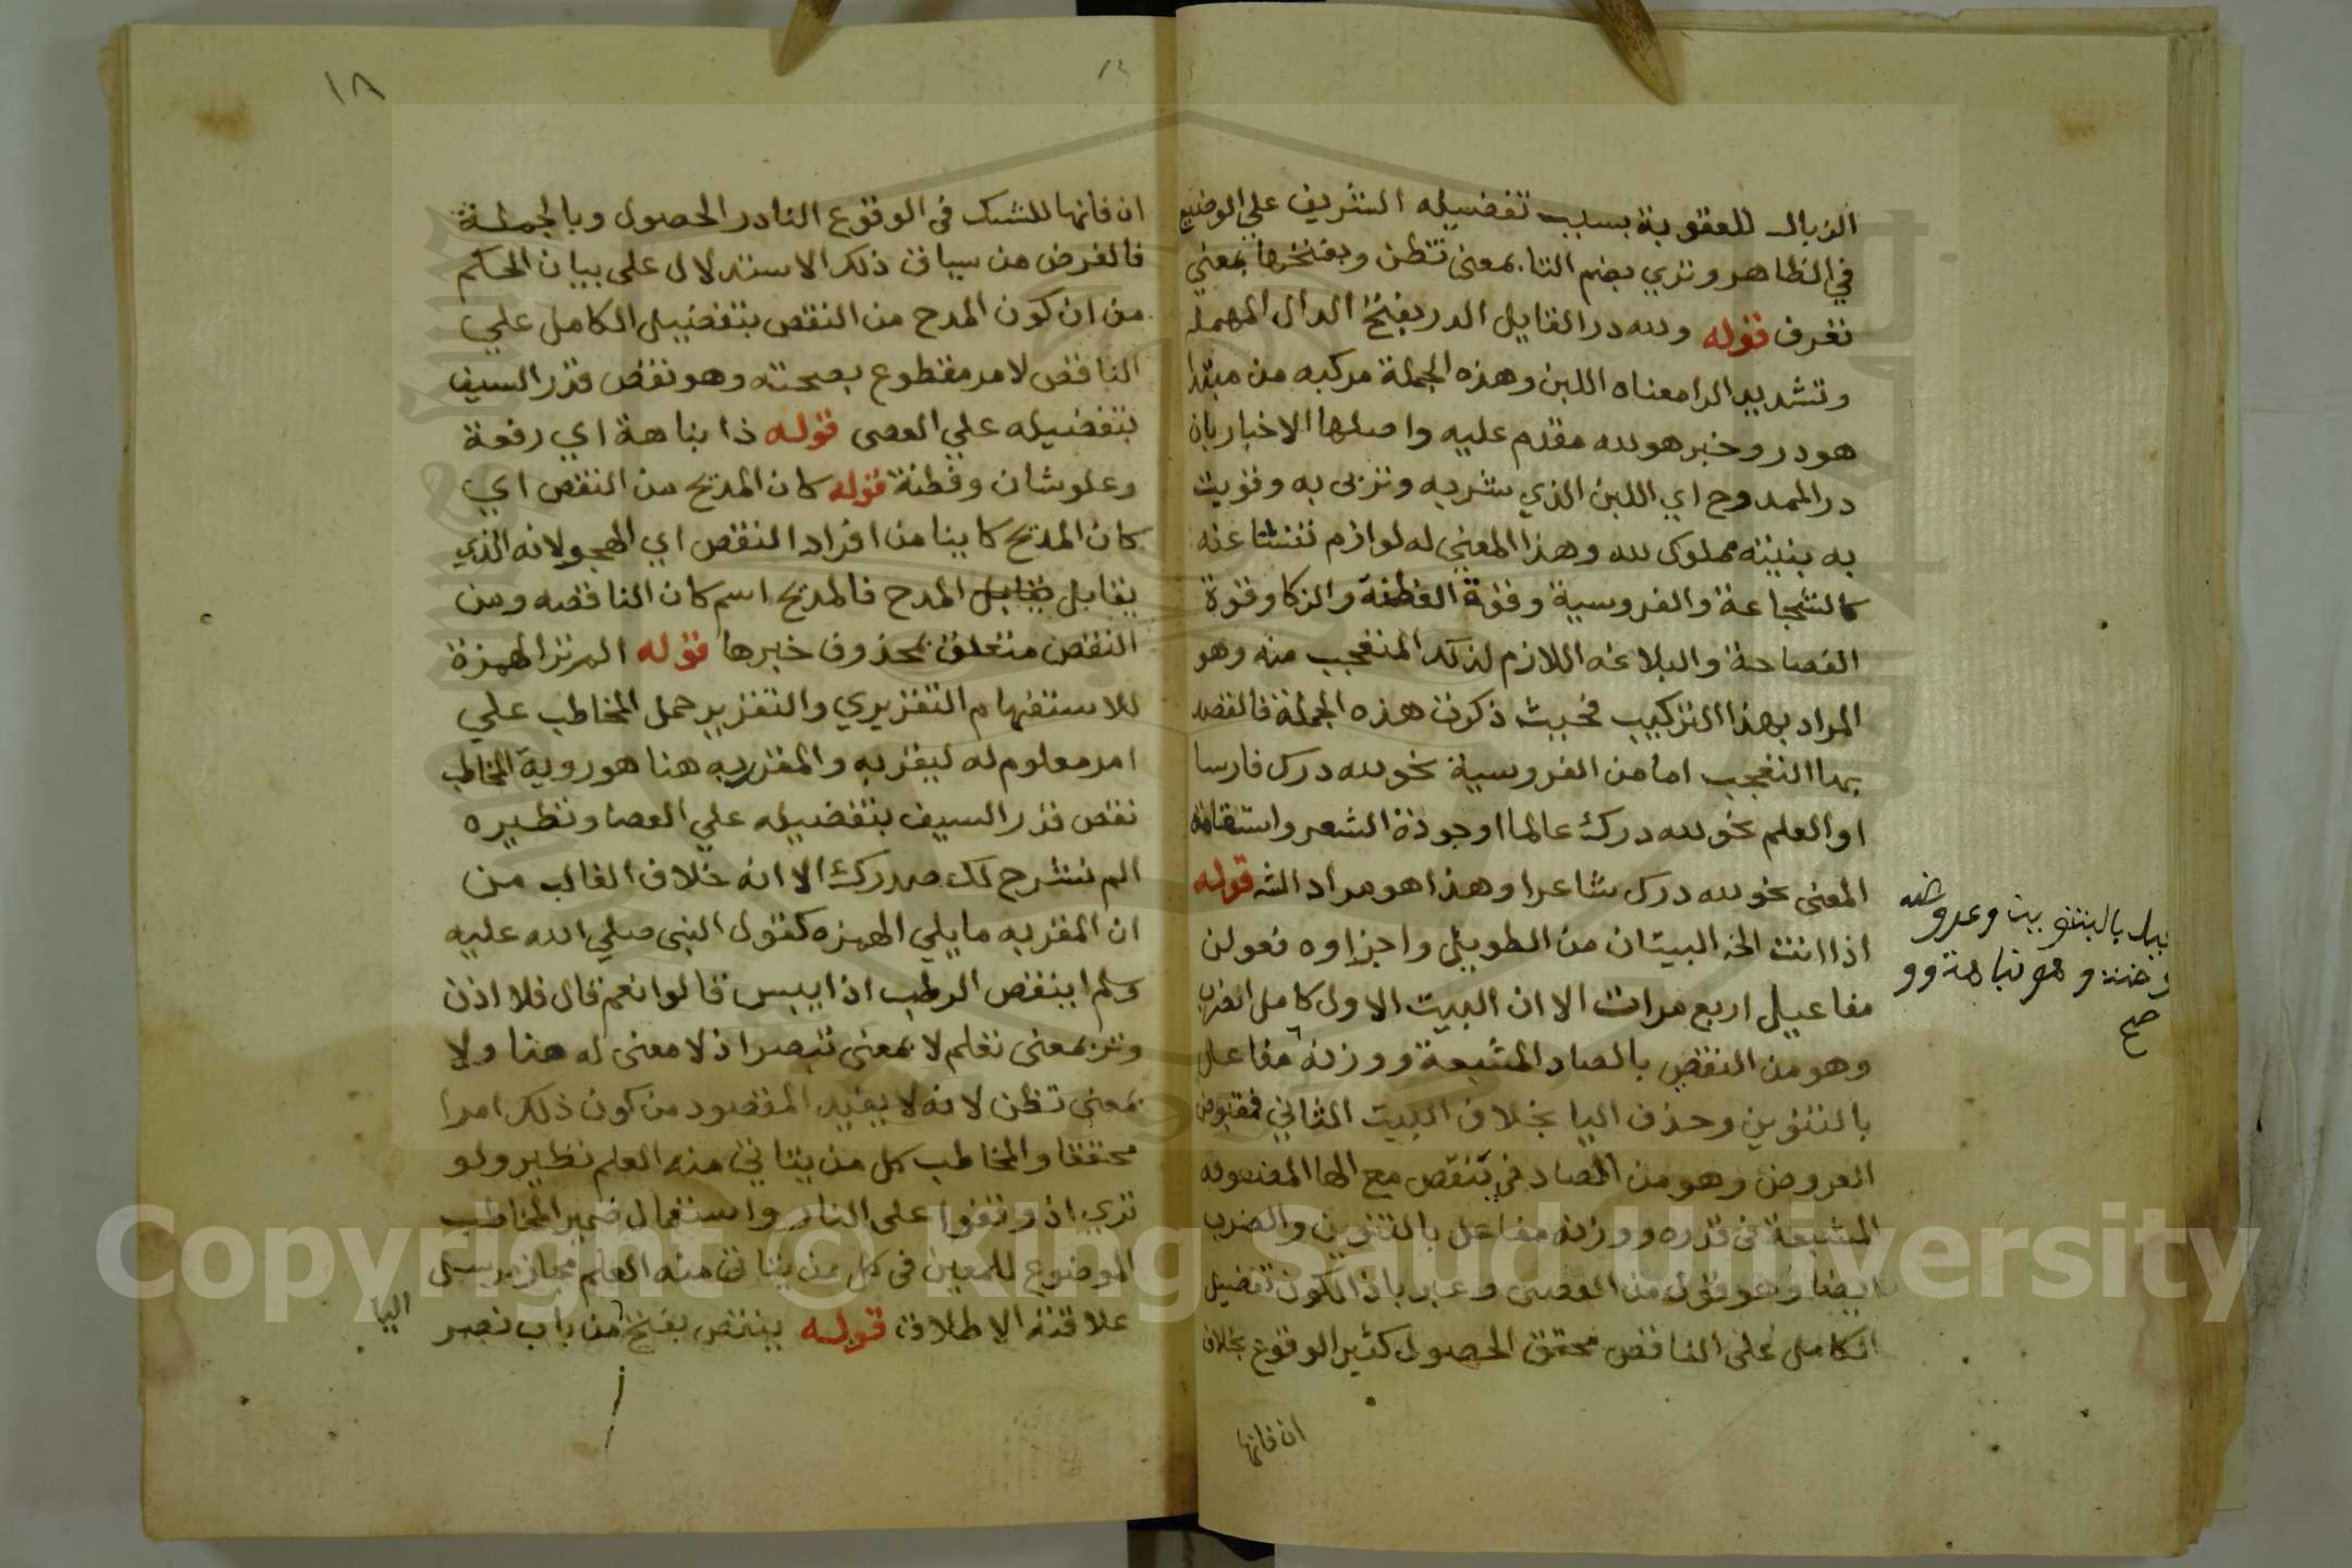 الزبال للعقوبة بسبب تفضيله الشريف علي الوضيع
في الظاهر وتري بضم التا بمعنى تظن وبفتحها بمعني
تعرف قوله ولله در القايل الدر بفتح الدال المهملة
وتشديد الرا معناه اللبن وهذه الجملة مركبه من مبتدا
هو در وخبر هو لله مقدم عليه واصلها الاخبار بان
در الممدوح اي اللبن الذي شربه وتربى به وقويت
به بنيته مملوك لله وهذا المعني له لوازم تنشا عنه
كالشجاعة والفروسية وقوة الفطنة والذكا وقوة
الفصاحة والبلاغه اللازم لذلك المتعجب منه وهو
المراد بهذا التركيب فحيث ذكرت هذه الجملة فالقصد
بها التعجب اما من الفروسية نحو لله درك فارسا
او العلم نحو لله درك عالما او جودة الشعر واستقامة
المعنى نحو لله درك شاعرا وهذا هو مراد الشه قوله
اذا انت الخ البيتان من الطويل واجزاوه فعولن
مفاعيل اربع مرات الا ان البيت الاول كامل الضرب
وهو من النقص بالصاد المشبعة ووزنه مفاعل
بالتنوين وحذف اليا بخلاف البيت الثاني فمقبوض
العروض وهو من الصاد في تنقص مع الها المضمومه
المشبعة في قدره ووزنه مفاعل بالتنوين والضرب
ايضا وهو قول من العصى وعبر باذا لكون تفضيل
الكامل على الناقص محقق الحصول كثير الوقوع بخلاف
ان فانها
بالتنو بين وعروضه
وهو نباهة وو
صح
١٨
ان فانها للشك في الوقوع النادر الحصول وبالجملة
فالغرض من سياق ذلك الاستدلال على بيان الحكم
من ان كون المدح من النقص بتفضيل الكامل علي
الناقص لامر مقطوع بصحته وهو نقص قدر السيف
بتفضيله علي العصى قوله ذا نباهة اي رفعة
وعلو شان وفطنة قوله كان المديح من النقص اي
كان المديح كاينا من افراد النقص اي الهجو لانه الذي
يقابل يقابل المدح فالمديح اسم كان الناقصه ومن
النقص متعلق بمحذوف خبرها قوله الم تر الهمزة
للاستفهام التقريري والتقرير حمل المخاطب علي
امر معلوم له ليقر به والمقرر به هنا هو روية المخاطب
نقص قدر السيف بتفضيله علي العصا ونظيره
الم نشرح لك صدرك الا انه خلاف الغالب من
ان المقر به ما يلي الهمزه كقول النبي صلي الله عليه
وسلم اينقص الرطب اذا يبس قالوا نعم قال فلا اذن
وتر بمعنى تعلم لا بمعنى تبصر اذ لا معنى له هنا ولا
بمعنى تظن لانه لا يفيد المقصود من كون ذلك امرا
محققا والمخاطب كل من يتاتي منه العلم نظير ولو
تري اذ وقفوا على النار واستعمال ضمير المخاطب
الموضوع للمعين في كل من يتاتى منه العلم مجاز مرسل
علاقته الاطلاق قوله ينقص بفتح من باب نصر
اليا